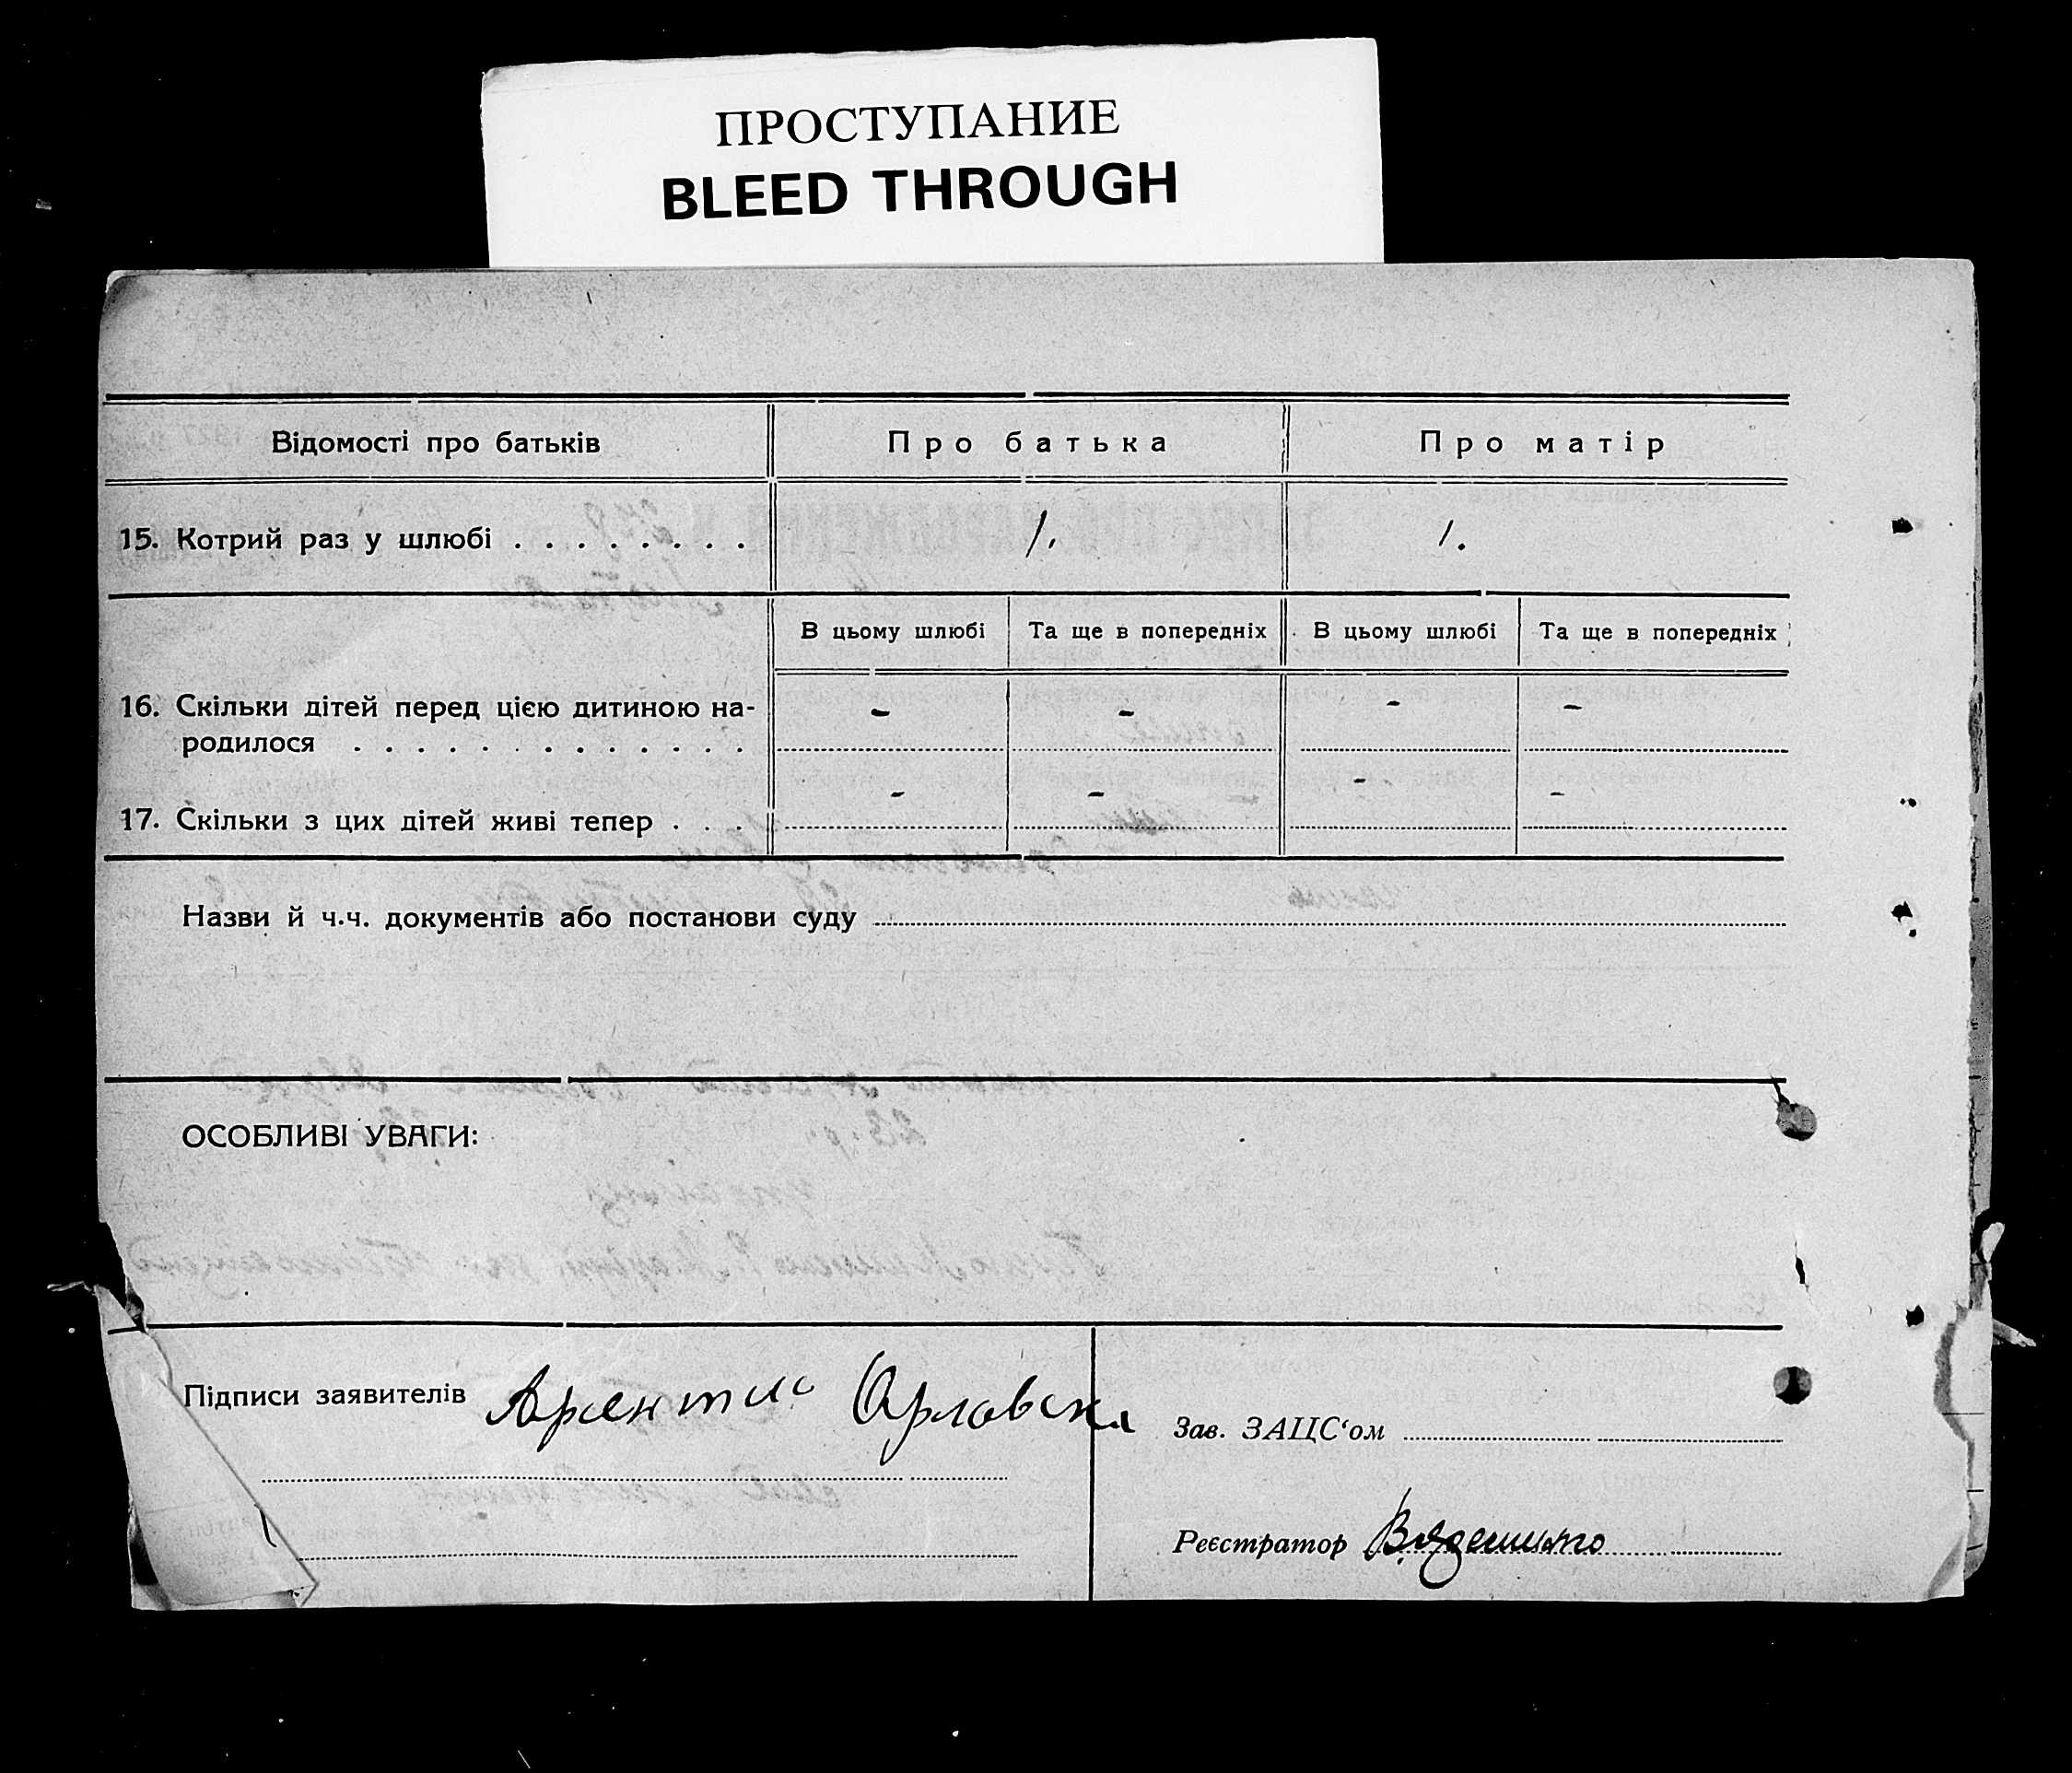 ПРОСТУПАНИЕ
BLEED THROUGH
Відомості про батьків Про батька Про матір
15. Котрий раз у шлюбі . . . . . . . . 1. 1.
В цьому шлюбі Та ще в попередніх В цьому шлюбі Та ще в попередніх
16. Скільки дітей перед цією дитиною на- - - - -
родилося . . . . . . . . . . . . .
17. Скільки з цих дітей живі тепер . . . - - - -
Назви й ч.ч. документів або постанови суду
ОСОБЛИВІ УВАГИ:
Підписи заявителів
Зав. ЗАЦС‘ом
Реєстратор